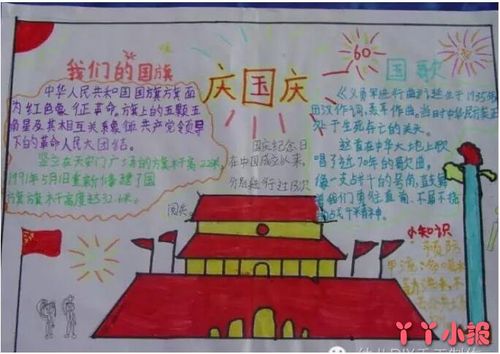 我们的国旗
中华人民共和国国旗旗面
为红色象征革命,旗上的五颗五
角星及其相互关系象征共产党领导
下的革命人民大团结。
竖立在天安门广场的旗杆高22米,
1991年5月1日重新修建了国
旗旗杆高度
庆国庆
国庆纪念日
在中国成立以来,
60
国歌
《义勇军进行曲》诞生于1935年
田汉作词,聂耳作曲。当时中华民族正
处于生死存亡的关头。
这首在中华大地上歌
唱了近70年的歌曲,
像一支战斗的号角,鼓舞
着我们勇往直前、不屈不挠
的战斗精神。
小知识
预防
甲流
丫丫小报